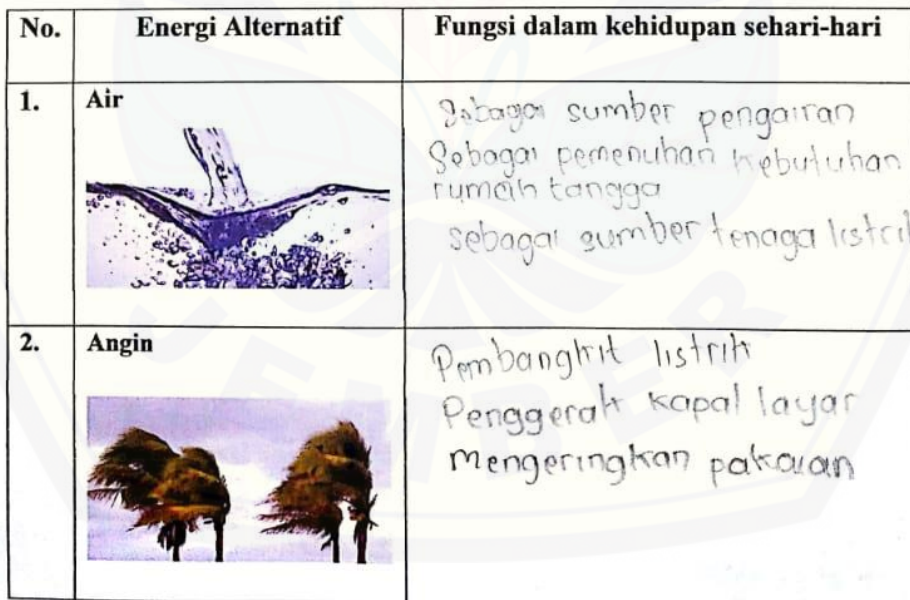 No. Energi Alternatif Fungsi dalam kehidupan sehari-hari
1. Air
Sebagai sumber pengairan
Sebagai pemenuhan kebutuhan
rumah tangga
sebagai sumber tenaga listrik
2. Angin
Pembangkit listrik
Penggerak kapal layar
mengeringkan pakaian